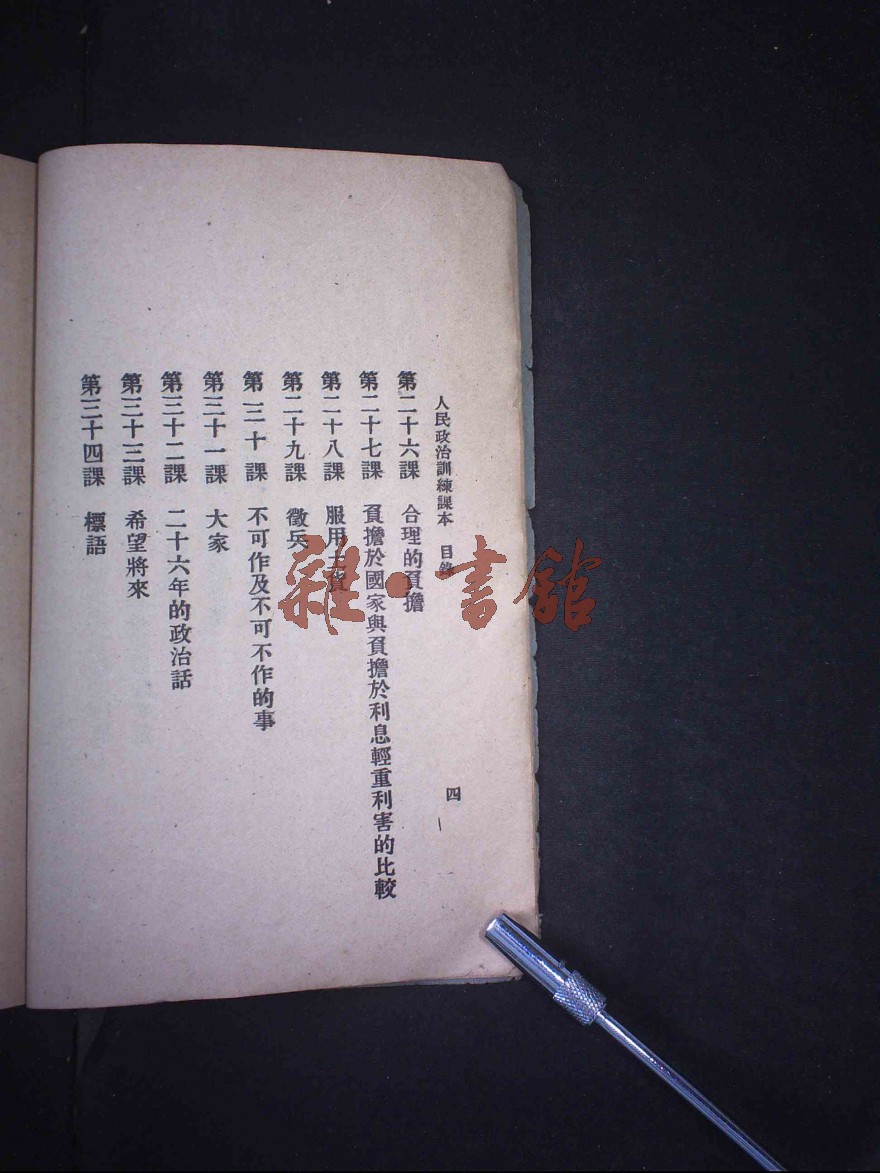 人民政治訓練課本 目錄 四
第二十六課 合理的負擔
第二十七課 負擔於國家與負擔於利息輕重利害的比較
第二十八課 服用土貨
第二十九課 徵兵
第三十課 不可作及不可不作的事
第三十一課 大家
第三十二課 二十六年的政治話
第三十三課 希望將來
第三十四課 標語
雜·書館